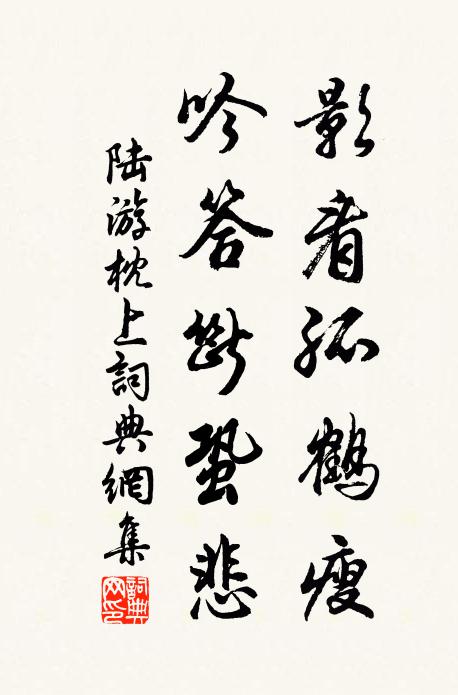 影看孤鶴瘦
吟答斷蛩悲
陸游枕上詞典網集
詞典網印